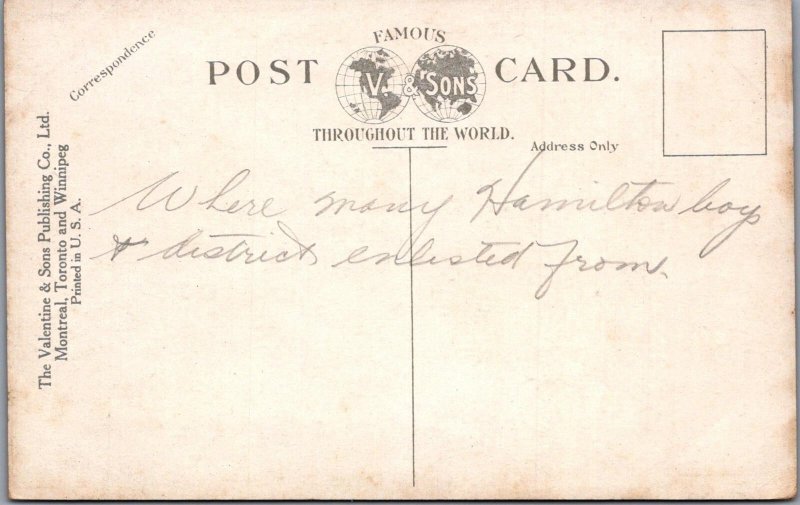 Correspondence
FAMOUS
POST CARD.
V. & SONS
THROUGHOUT THE WORLD.
Address Only
The Valentine & Sons Publishing Co., Ltd.
Montreal, Toronto and Winnipeg
Printed in U. S. A.
Where many Hamilton boys
& district enlisted from.